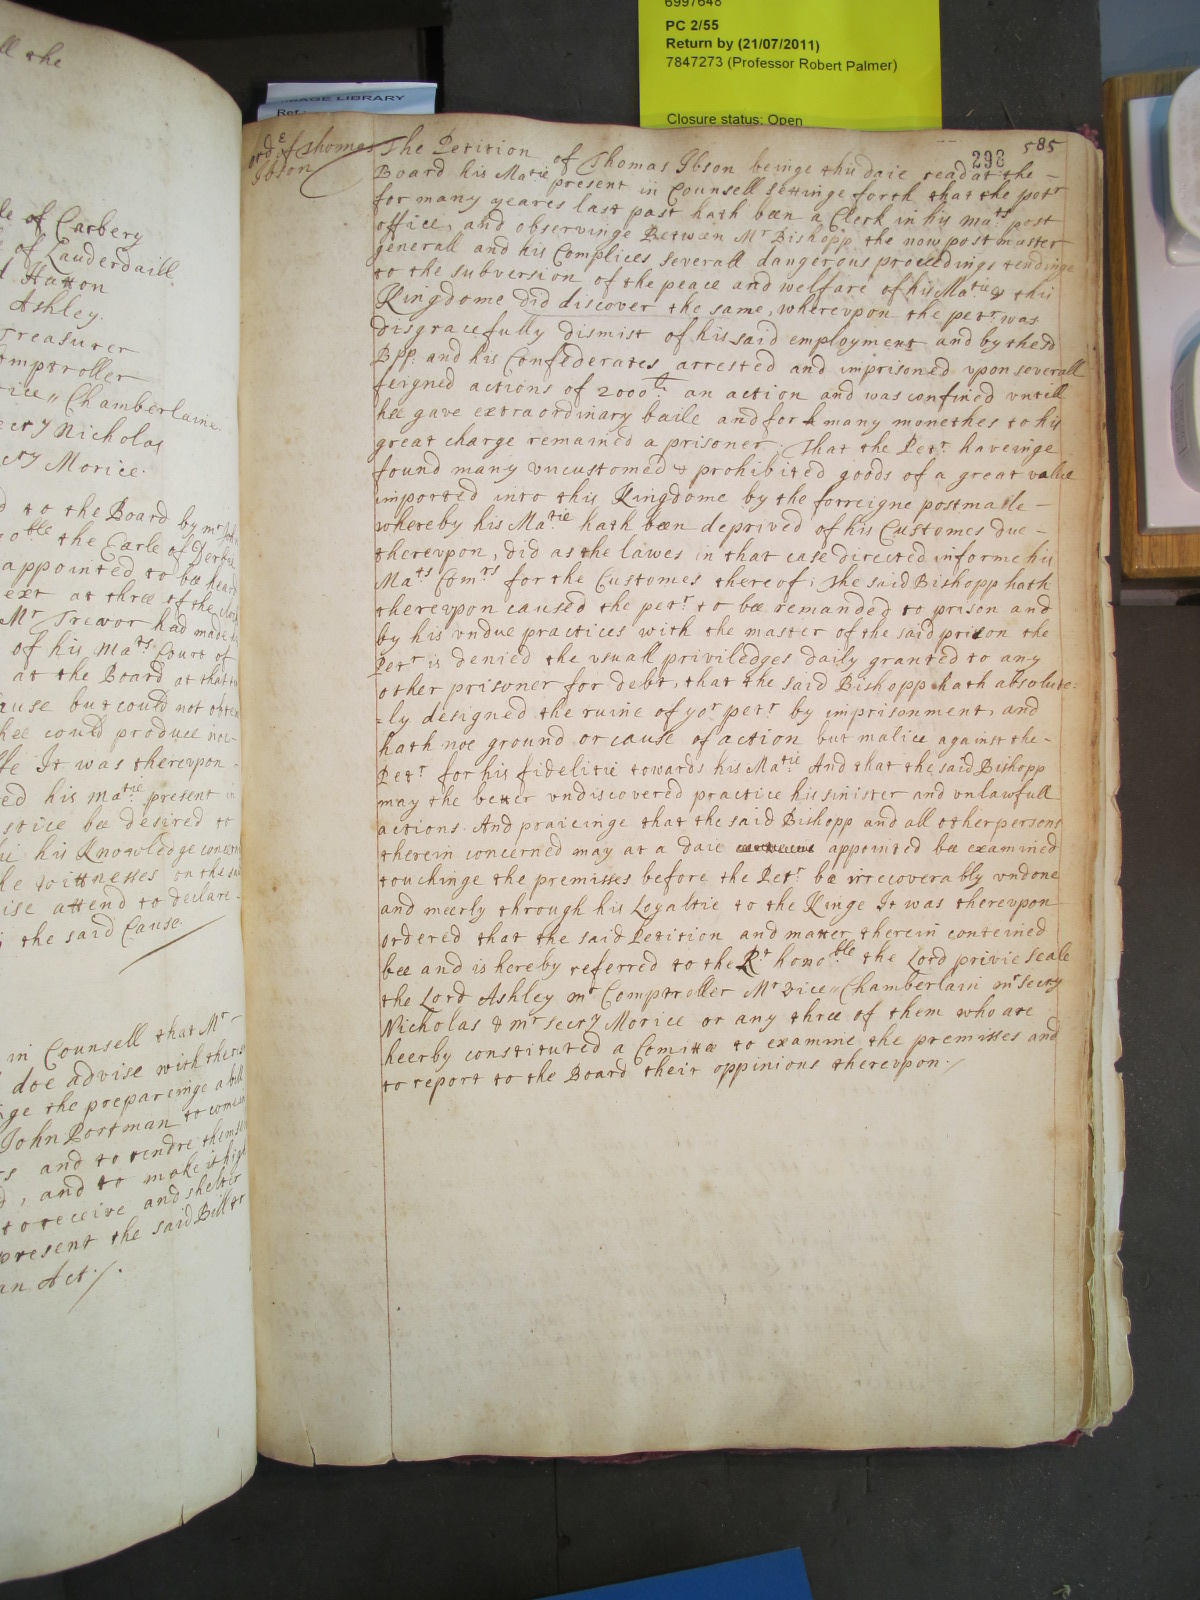 6997648
PC 2/55
Return by (21/07/2011)
7847273 (Professor Robert Palmer)
Closure status: Open
LIBRARY
Ref
ll the
le of Carbery
of Lauderdaill
Hatton
Ashley.
Treasurer
omptroller
vice,, Chamberlaine.
ecry Nicholas
cry Morice.
d to the Board by mr
oble the Earle of Derbie
appointed to bee heard
ext at three of the clock
Mr Trevor had made
of his mats Court of
at the Board at that
ause but could not
hee could produce
ffe It was therevpon
ed his matie present in
stice bee desired to
his Knowledge
he wittnesses on the
ise attend to declare
the said Cause
in Counsell that Mr
doe advise with the
ge the prepareinge a bill
John Portman to
s and to rendre
d, and to make it high
to receive and shelter
present the said Bill to
an Act ./.
298 585
orde of Thomas
Ibson
The Petition of Thomas Ibson beinge this daie read at the
Board his Matie present in Counsell settinge forth that the petr
for many yeares last past hath been a Clerk in his mats post
office, and observinge Between Mr Bishopp the now postmaster
generall and his Complices severall dangerous proceedings tendinge
to the subversion of the peace and welfare of his Matie & this
Kingdome did discover the same, wherevpon the petr was
disgracefully dismist of his said employment and by the sd
Bpp. and his Confederates arrested and imprisoned vpon severall
feigned actions of 2000li an action and was confined vntill
hee gave extraordinary baile and for many monethes to his
great charge remained a prisoner. That the Petr haveinge
found many vncustomed & prohibited goods of a great value
imported into this Kingdome by the forreigne postmale
whereby his Matie hath been deprived of his Customes due
therevpon, did as the lawes in that case directed informe his
Mats Comrs for the Customes thereof; The said Bishopp hath
therevpon caused the petr to bee remanded to prison and
by his vndue practices with the master of the said prison the
Petr is denied the vsuall priviledges daily granted to any
other prisoner for debt, that the said Bishopp hath absolute=
=ly designed the ruine of yor petr by imprisonment, and
hath noe ground or cause of action but malice against the
Petr for his fidelitie towards his Matie And that the said Bishopp
may the better vndiscovered practice his sinister and vnlawfull
actions. And praieinge that the said Bishopp and all other persons
therein concerned may at a daie appointed bee examined
touchinge the premisses before the Petr be irrecoverably vndone
and meerly through his Loyaltie to the Kinge It was therevpon
ordered that the said Petition and matter therein conteined
bee and is hereby referred to the Rt honoble the Lord privie seale
the Lord Ashley mr Comptroller Mr vice,, Chamberlain mr Secry
Nicholas & mr secry Morice or any three of them who are
heerby constituted a Comittee to examine the premisses and
to report to the Board their oppinions therevpon./